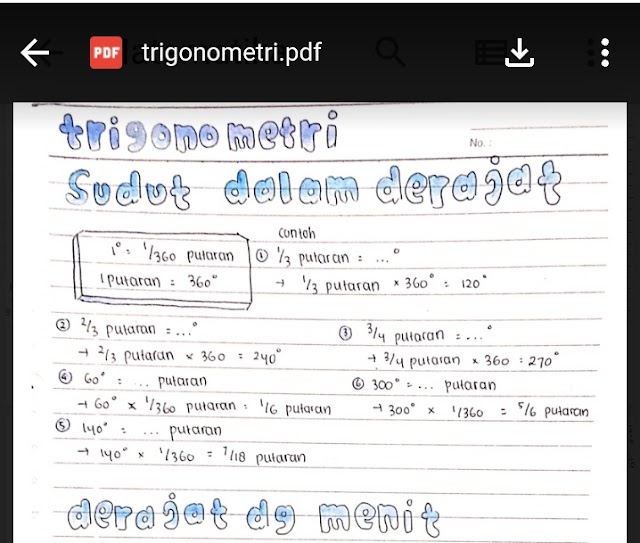 PDF trigonometri.pdf
trigonometri
No. :
Sudut dalam derajat
1° = 1/360 putaran
1 putaran = 360°
contoh
① 1/3 putaran = ...°
→ 1/3 putaran × 360° = 120°
② 2/3 putaran = ...°
→ 2/3 putaran × 360 = 240°
③ 3/4 putaran = ...°
→ 3/4 putaran × 360 = 270°
④ 60° = ... putaran
→ 60° × 1/360 putaran = 1/6 putaran
⑥ 300° = ... putaran
→ 300° × 1/360 = 5/6 putaran
⑤ 140° = ... putaran
→ 140° × 1/360 = 7/18 putaran
derajat dg menit